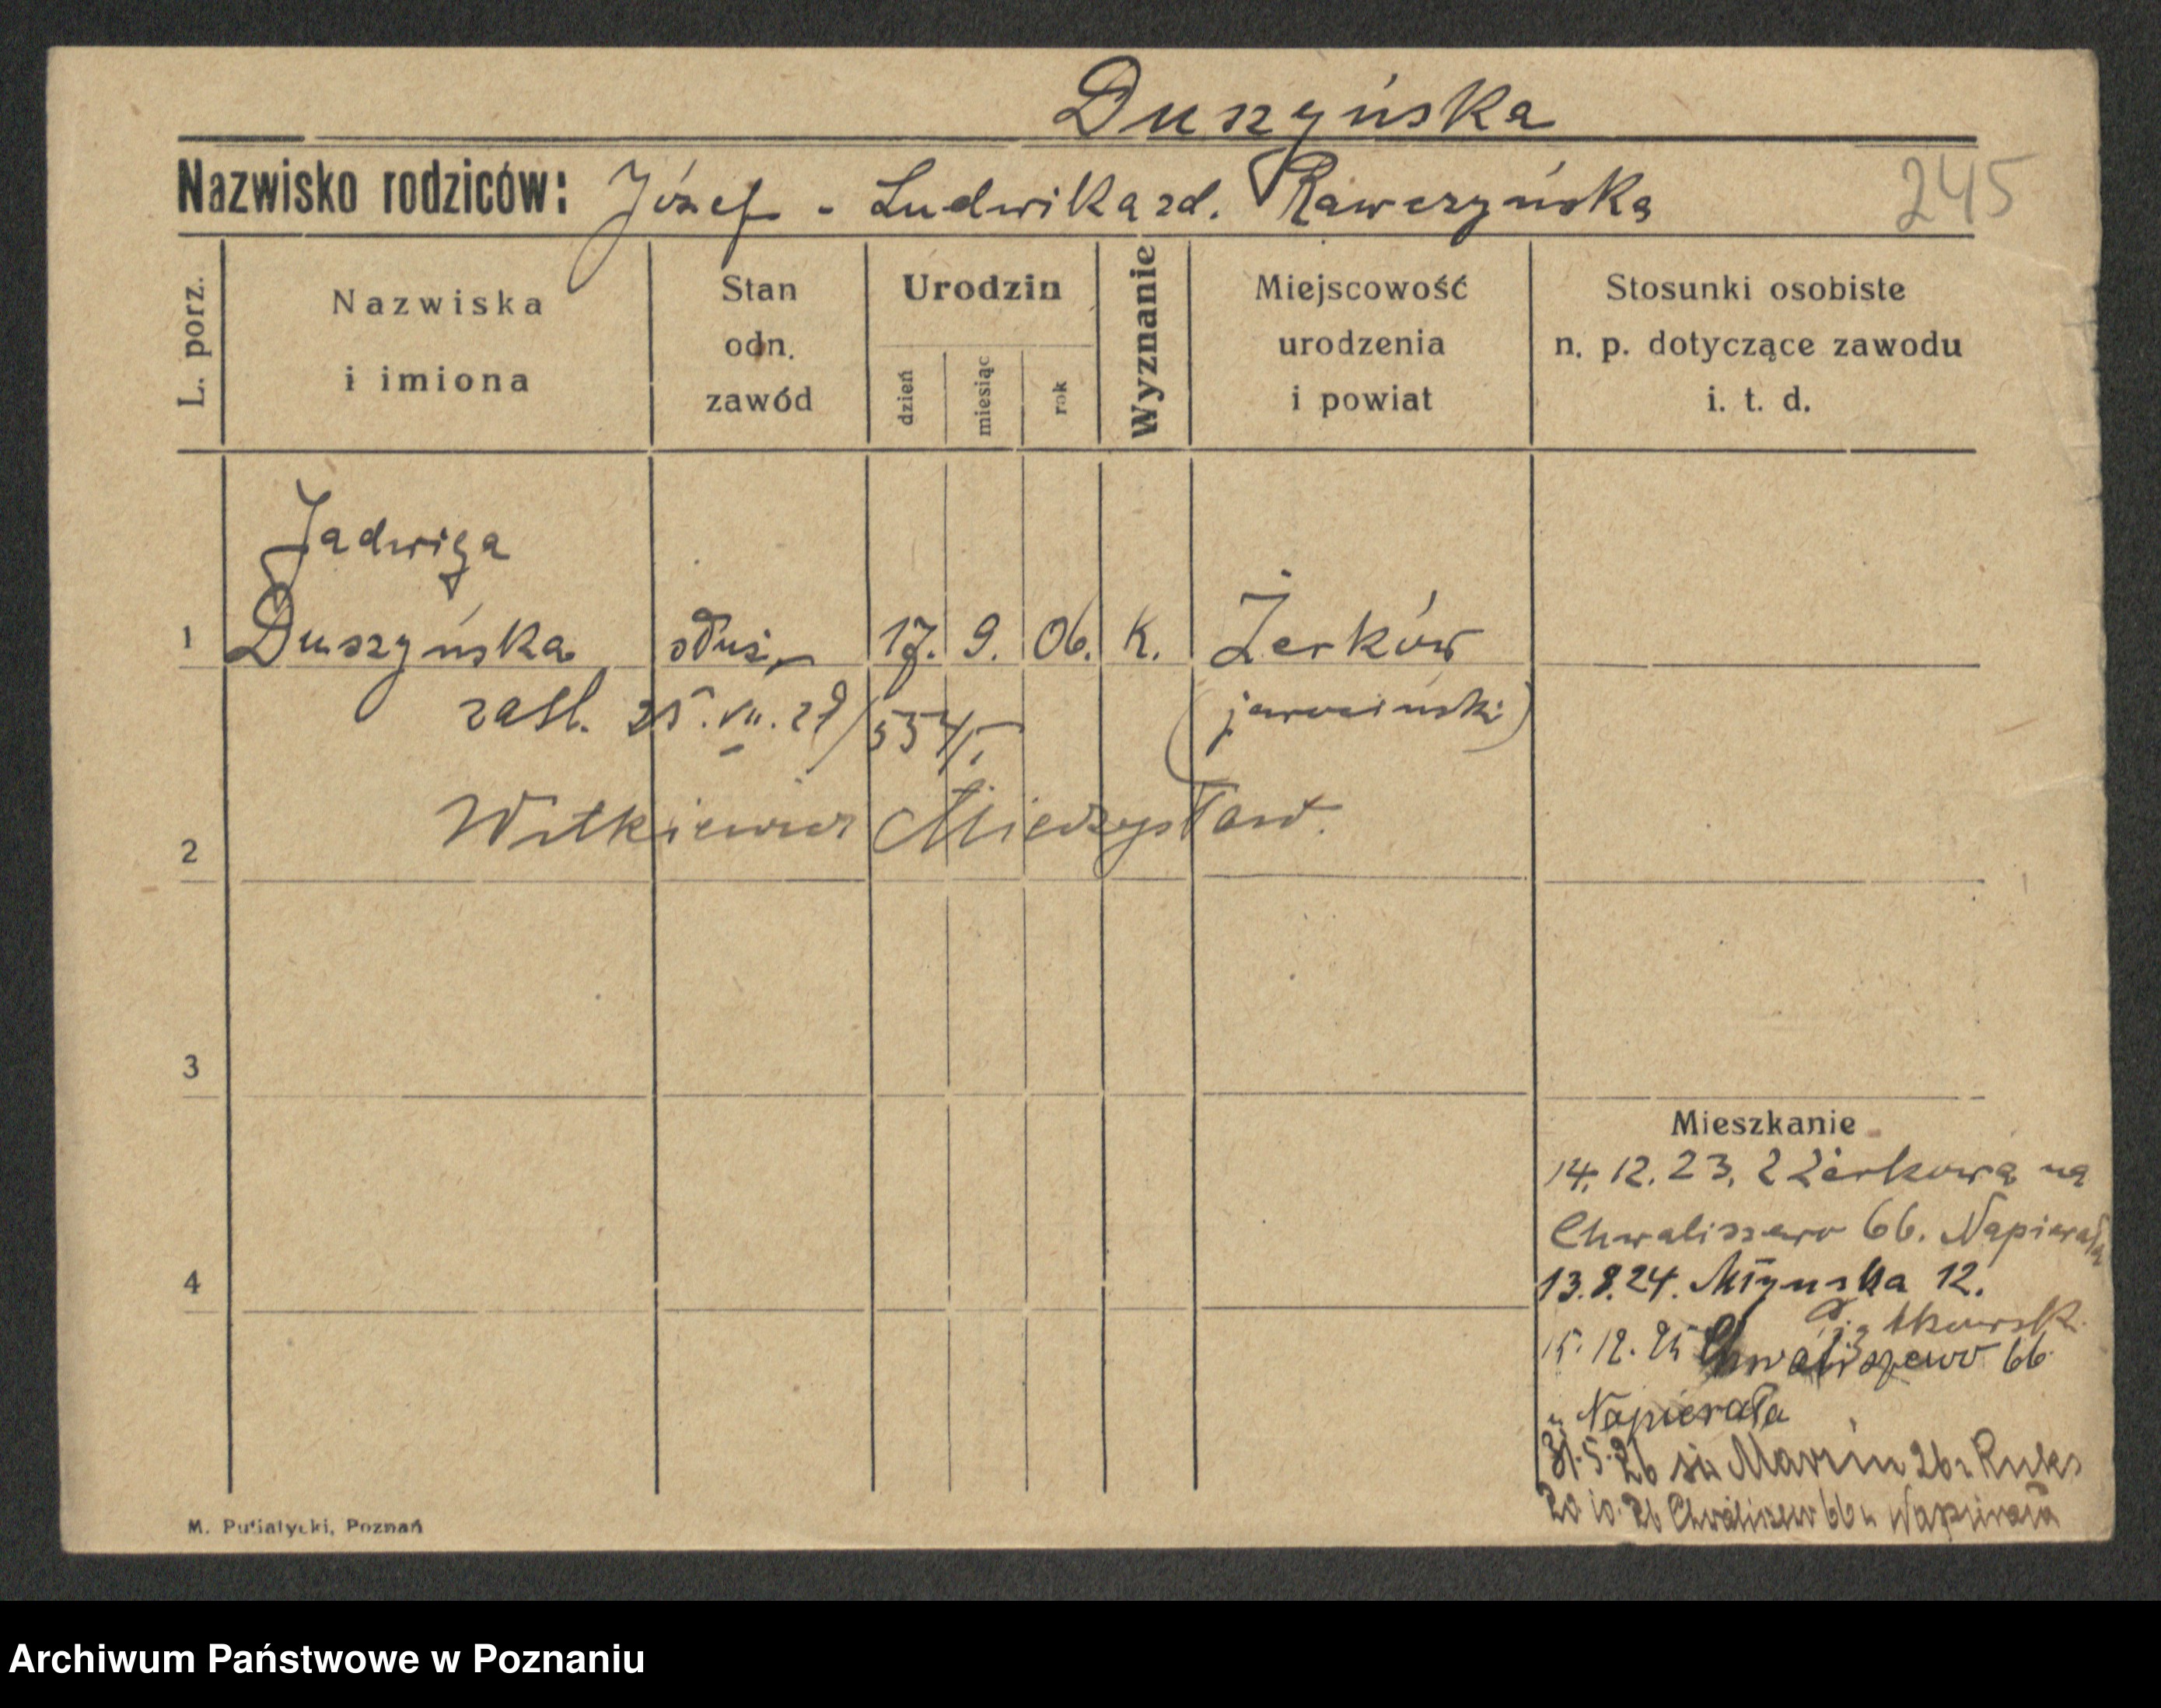 Duszyńska
Nazwisko rodziców: Józef - Ludwika zd. Rawczyńska
245
L. porz.
Nazwiska
i imiona
Stan
odn.
zawód
Urodzin
dzień
miesiąc
rok
Wyznanie
Miejscowość
urodzenia
i powiat
Stosunki osobiste
n. p. dotyczące zawodu
i. t. d.
Jadwiga
1 Duszyńska służ. 17. 9. 06. K. Żerków
zasl. 25. VII. 29/554/ (jarociński)
Witkiewicz Mieczysław.
2
3
Mieszkanie
14. 12. 23. z Żerkowa na
Chwaliszewo 66. Napierała
4
13. 8. 24. Młyńska 12.
15. 12. 25 Chwaliszewo 66
u Napierała
31. 5. 26 Marcin 26
20 10. 26 Chwaliszewo 66 u Napierała
M. Putiatycki, Poznań
Archiwum Państwowe w Poznaniu